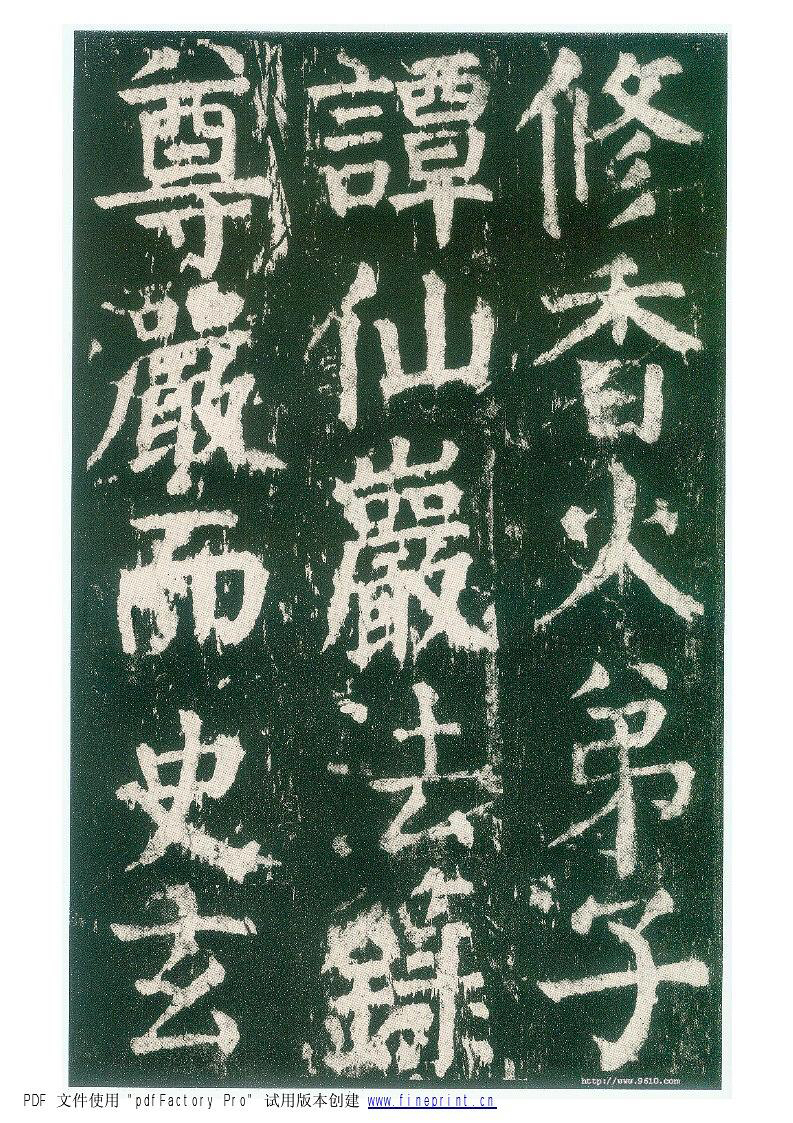 修香火弟子
譚仙巖法籙
尊嚴而史玄
http://www.9610.com
PDF 文件使用 "pdfFactory Pro" 试用版本创建 www.fineprint.cn